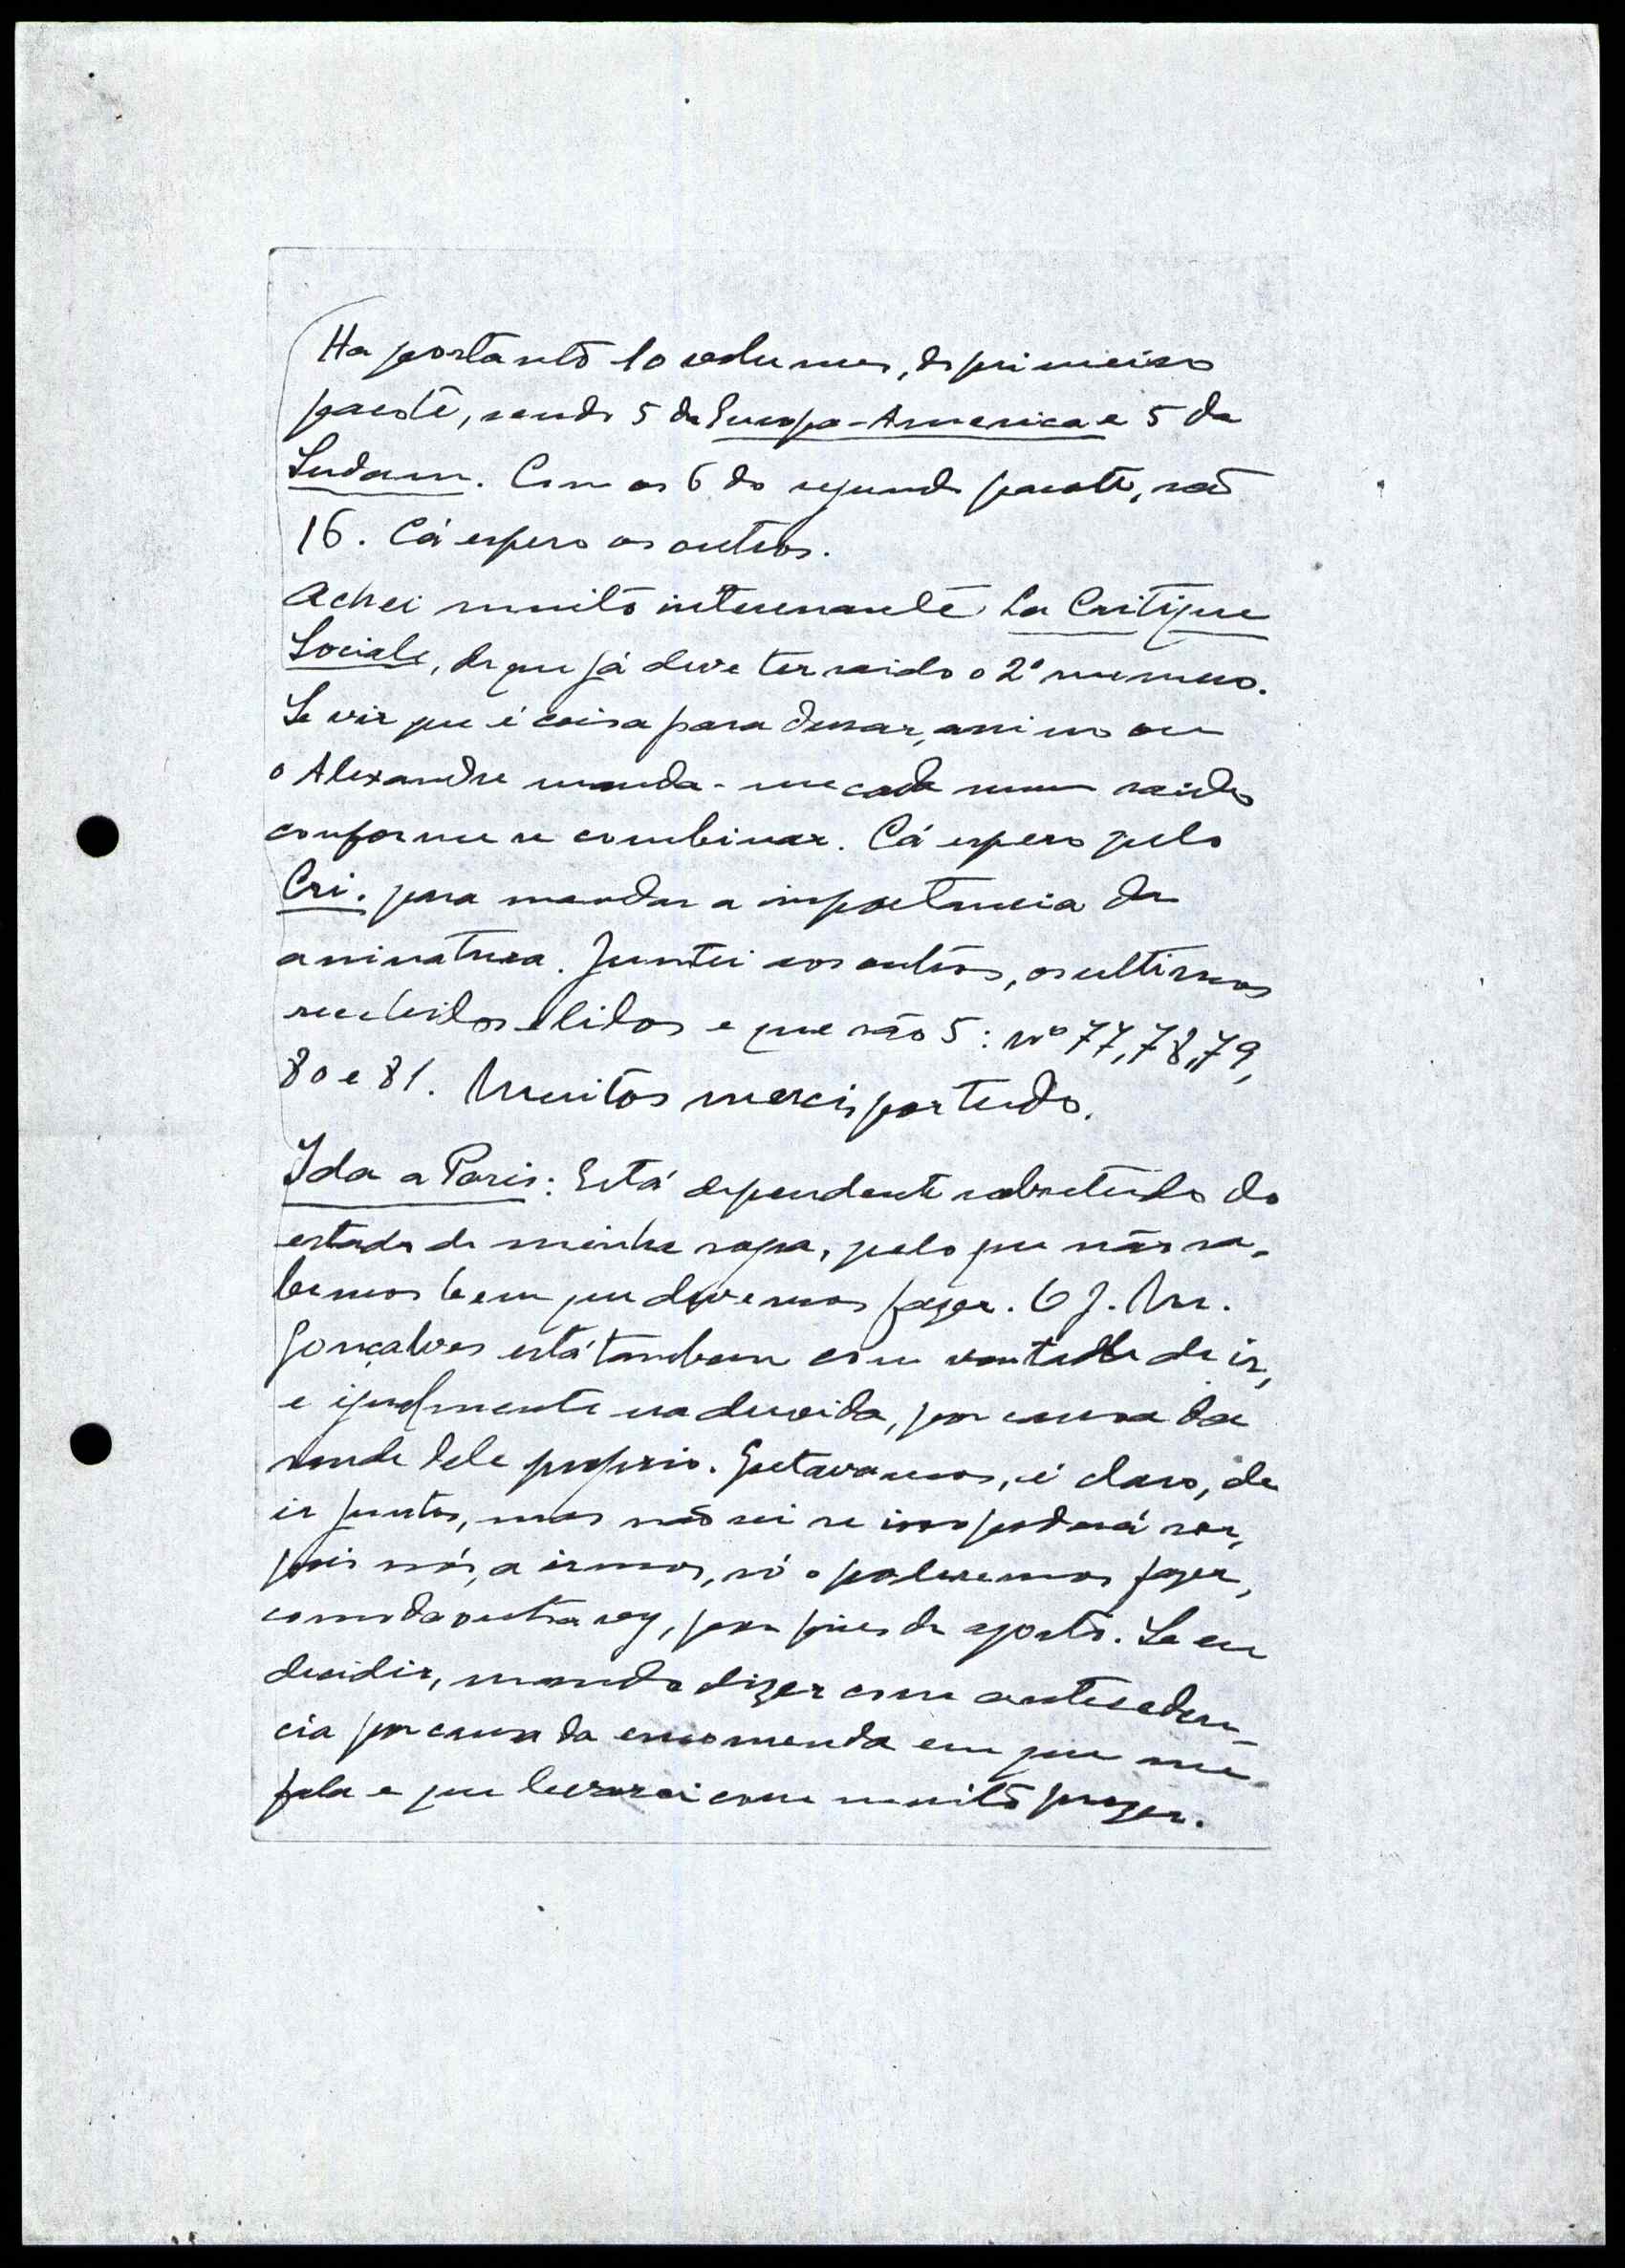 Ha portanto 10 volumes, do primeiro
pacote, sendo 5 da Europa-America e 5 da
Sudam. Com os 6 do segundo pacote, são
16. Cá espero os outros.
Achei muito interessante La Critique
Sociale, de que já deve ter saido o 2º numero.
Se vir que é coisa para durar, assino ou
o Alexandre manda-me cada num saido
conforme se combinar. Cá espero pelo
Cri. para mandar a importancia da
assinatura. Juntei aos outros, os ultimos
recebidos e lidos e que são 5: nº 77, 78, 79,
80 e 81. Muitos mercis por tudo.
Ida a Paris: Está dependente sobretudo do
estado de minha sogra, pelo que não sa-
bemos bem que devemos fazer. O J. M.
Gonçalves está tambem com vontade de ir,
e igualmente na duvida, por causa da
saude dele proprio. Gostavamos, é claro, de
ir juntos, mas não sei se isso poderá ser,
pois nós, a irmos, só o poderemos fazer,
como da outra vez, para fins de agosto. Se eu
decidir, mando dizer com anteceden-
cia por causa da encomenda em que me
fala e que levarei com muito prazer.